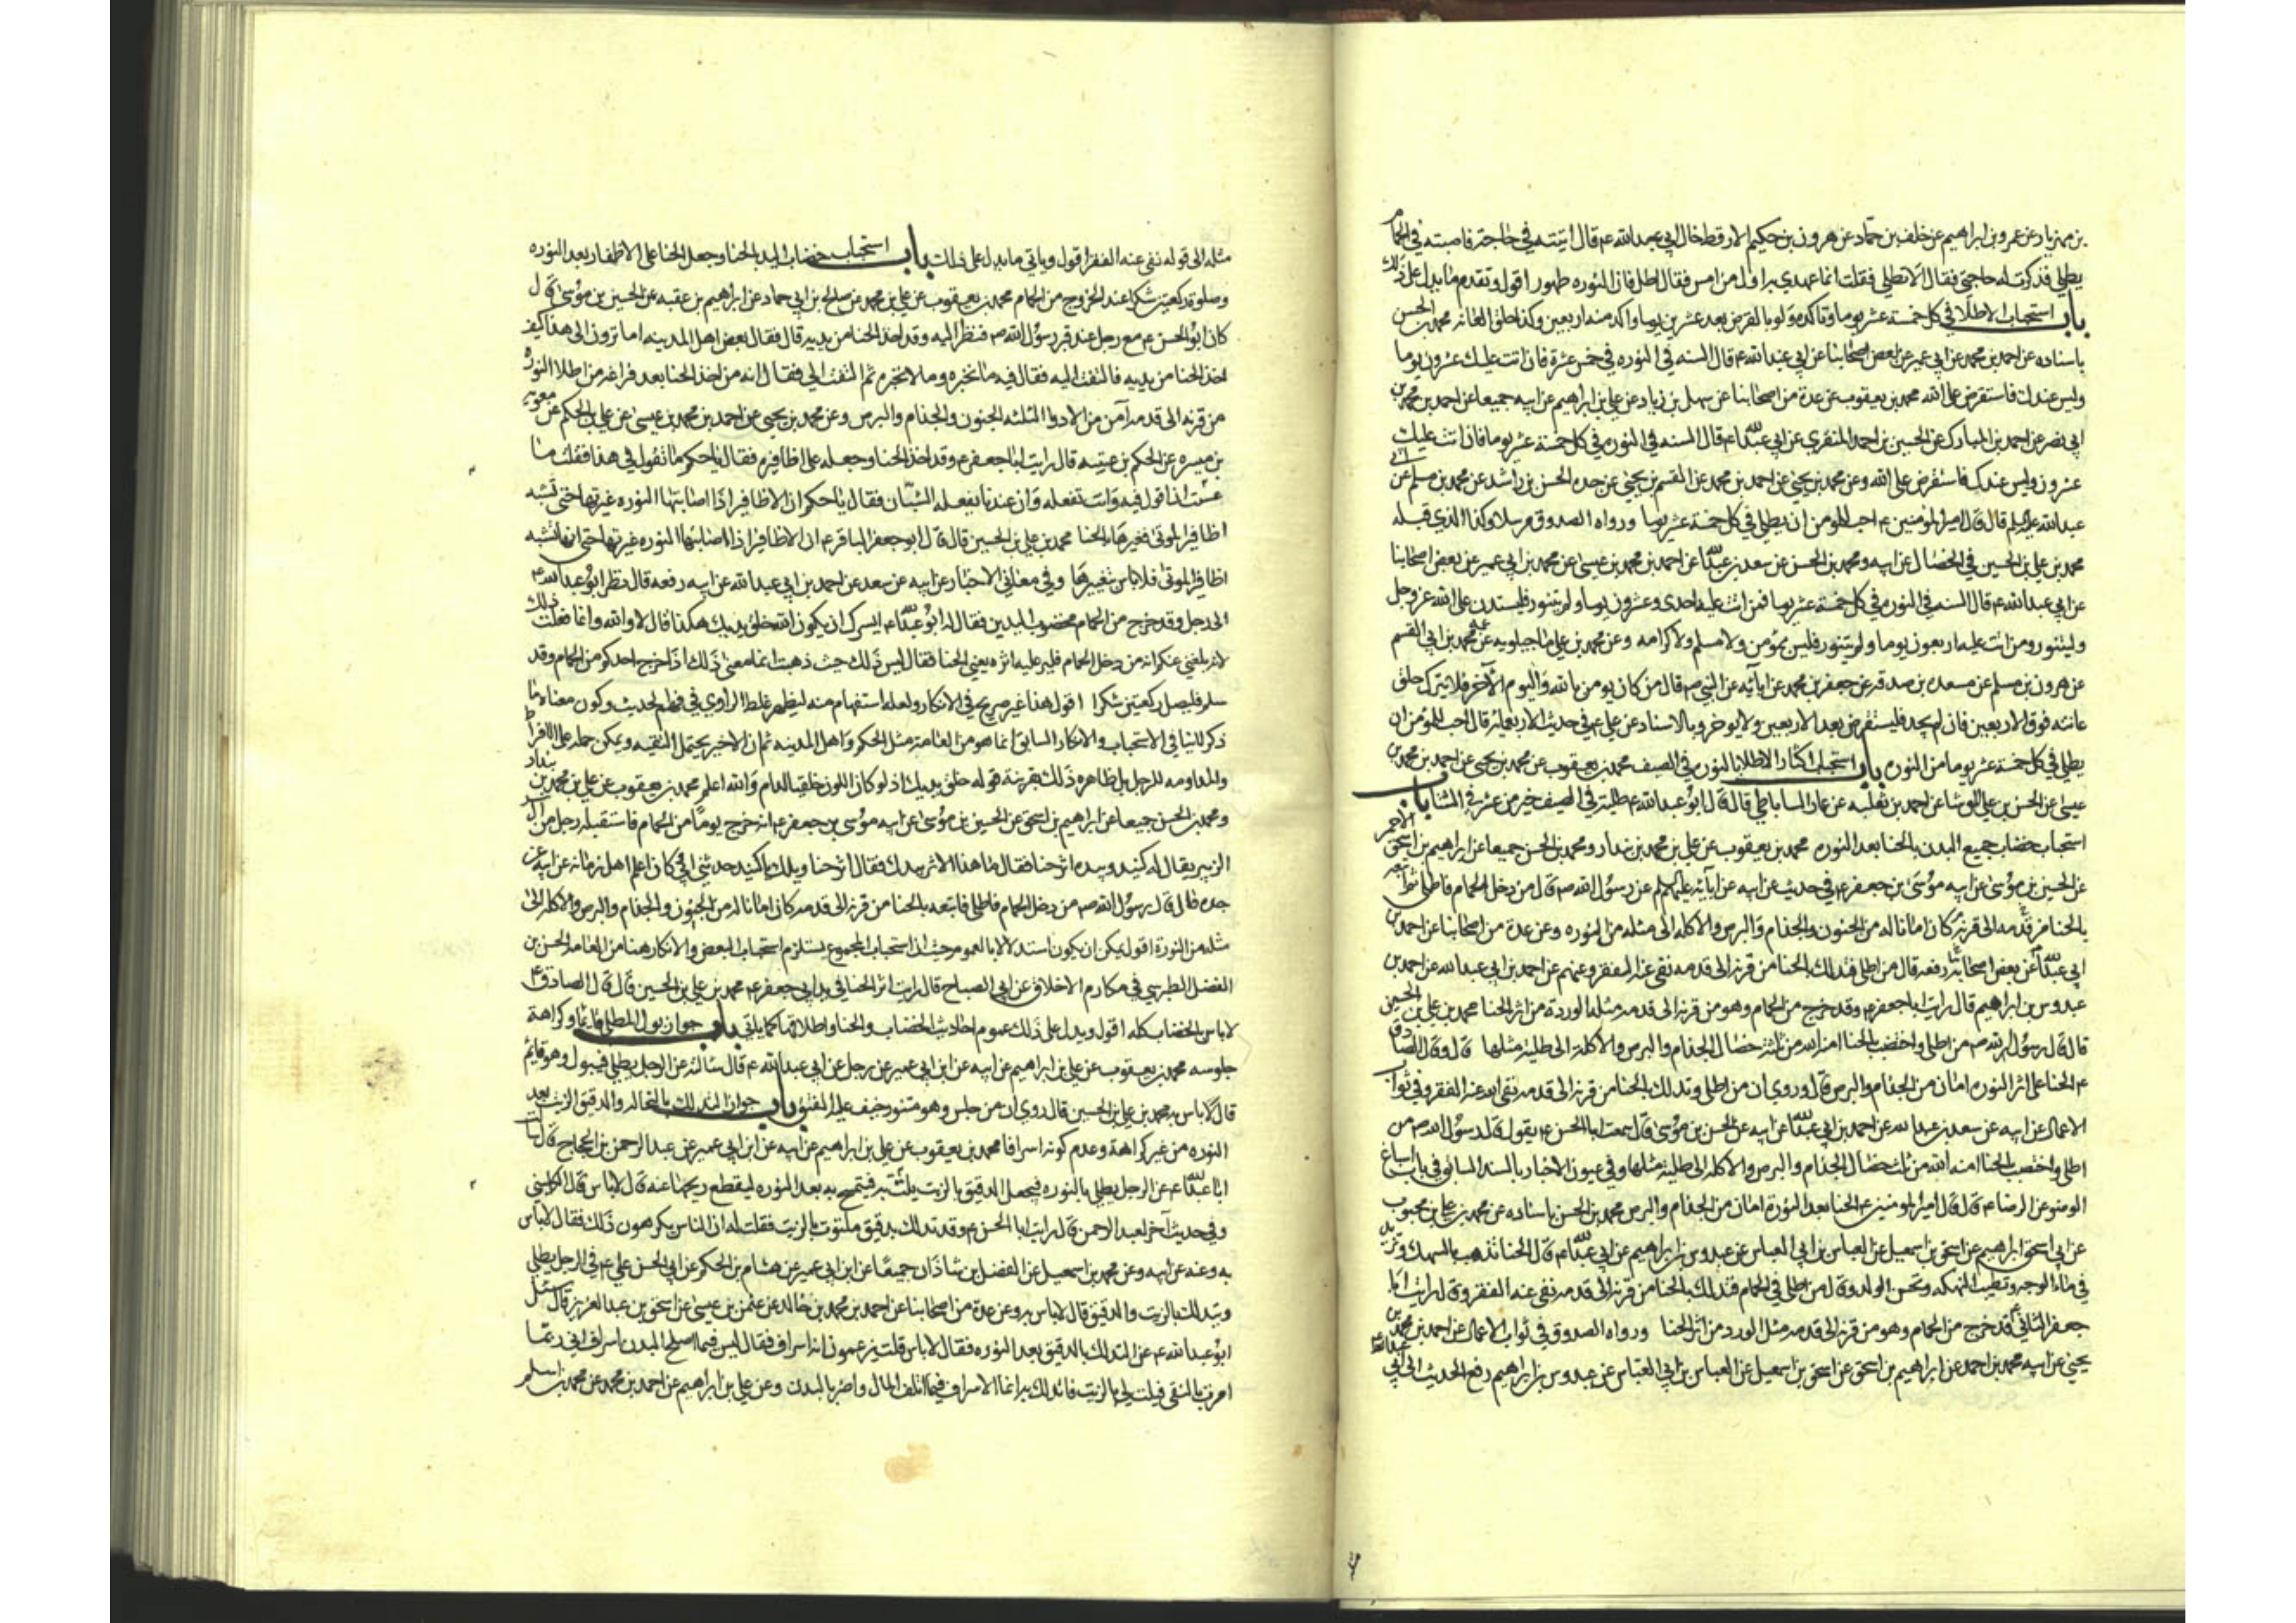 بن مهزيار عن عمرو بن ابراهيم عن خلف بن حماد عن هرون بن حكيم الارقط خال ابي عبد الله ع قال اتيته في حاجة فاصبته في الحمام
يطلي فذكرت له حاجتي فقال الا تطلي فقلت انما عهدي به اول من امس فقال اطل فان النوره طهور اقول وتقدم ما يدل على ذلك
باب استحباب الاطلا في كل خمسة عشر يوما وتاكده ولو بالقرض بعد عشرين يوما واكد منه اربعين وكذا حلق العانه محمد بن الحسن
باسناده عن احمد بن محمد عن ابن ابي عمير عن بعض اصحابنا عن ابي عبد الله ع قال السنه في النوره في خمس عشرة فان اتت عليك عشرون يوما
وليس عندك فاستقرض على الله محمد بن يعقوب عن عدة من اصحابنا عن سهل بن زياد وعن علي بن ابراهيم عن ابيه جميعا عن احمد بن محمد بن
ابي نصر عن احمد بن المبارك عن الحسين بن احمد المنقري عن ابي عبد الله ع قال السنه في النوره في كل خمسة عشر يوما فان اتت عليك
عشرون وليس عندك فاستقرض على الله وعن محمد بن يحيى عن احمد بن محمد عن القسم بن يحيى عن جده الحسن بن راشد عن محمد بن مسلم عن ابي
عبد الله عليه السلم قال قال امير المؤمنين ع احب للمؤمن ان يطلي في كل خمسة عشر يوما ورواه الصدوق مرسلا وكذا الذي قبله
محمد بن علي بن الحسين في الخصال عن ابيه ومحمد بن الحسن عن سعد بن عبد الله عن احمد بن محمد بن عيسى عن محمد بن ابي عمير عن بعض اصحابنا
عن ابي عبد الله ع قال السنه في النوره في كل خمسة عشر يوما فمن اتت عليه احدى وعشرون يوما ولم يتنور فليستدن على الله عز وجل
وليتنور ومن اتت عليه اربعون يوما ولم يتنور فليس بمؤمن ولا مسلم ولا كرامه وعن محمد بن علي ماجيلويه عن عمه محمد بن ابي القسم
عن هرون بن مسلم عن مسعده بن صدقه عن جعفر بن محمد عن ابآئه عن النبي ص قال من كان يومن بالله واليوم الآخر فلا يترك حلق
عانته فوق الاربعين فان لم يجد فليستقرض بعد الاربعين ولا يوخر وبالاسناد عن علي ع في حديث الاربعمائه قال احب للمؤمن ان
يطلي في كل خمسة عشر يوما من النوره باب استحباب اكثار الاطلا بالنوره في الصيف محمد بن يعقوب عن محمد بن يحيى عن احمد بن محمد بن
عيسى عن الحسن بن علي الوشا عن احمد بن ثعلبه عن عمار الساباطي قال قال ابو عبد الله ع طليه في الصيف خير من عشر في الشتا باب
استحباب خضاب جميع البدن بالحنا بعد النوره محمد بن يعقوب عن علي بن محمد بن بندار ومحمد بن الحسن جميعا عن ابراهيم بن اسحق الاحمر
عن الحسين بن موسى عن ابيه موسى بن جعفر ع في حديث عن ابيه عن ابآئه عليهم السلم عن رسول الله ص قال من دخل الحمام فاطلى ثم اتبعه
بالحنا من قرنه الى قدمه كان امانا له من الجنون والجذام والبرص والاكله الى مثله من النوره وعن عدة من اصحابنا عن احمد بن
ابي عبد الله عن بعض اصحابنا رفعه قال من اطلى فتدلك بالحنا من قرنه الى قدمه نفي عنه الفقر وعنهم عن احمد بن ابي عبد الله عن احمد بن
عبدوس بن ابراهيم قال رايت ابا جعفر ع وقد خرج من الحمام وهو من قرنه الى قدمه مثل الوردة من اثر الحنا محمد بن علي بن الحسين
قال قال رسول الله ص من اطلى واختضب بالحنا امنه الله من ثلثه خصال الجذام والبرص والاكلة الى طليه مثلها قال وقال الصادق
ع الحنا على اثر النوره امان من الجذام والبرص قال وروي ان من اطلى وتدلك بالحنا من قرنه الى قدمه نفى الله عنه الفقر وفي ثواب
الاعمال عن ابيه عن سعد بن عبد الله عن احمد بن ابي عبد الله عن ابيه عن الحسن بن موسى قال سمعت ابا الحسن ع يقول قال رسول الله ص من
اطلى واختضب بالحنا امنه الله من ثلث خصال الجذام والبرص والاكله الى طليه مثلها وفي عيون الاخبار بالسند السابق في باب اسباغ
الوضو عن الرضا ع قال قال امير المومنين ع الحنا بعد النورة امان من الجذام والبرص محمد بن الحسن باسناده عن محمد بن علي بن محبوب
عن ابي اسحق ابراهيم عن اسحق بن اسمعيل عن العباس بن ابي العباس عن عبدوس بن ابراهيم عن ابي عبد الله ع قال الحنا تذهب بالسهك وتزيد
في ماء الوجه وتطيب النكهه وتحسن الولد وقال من اطلى في الحمام فتدلك بالحنا من قرنه الى قدمه نفي عنه الفقر وقال رايت ابا
جعفر الثاني ع قد خرج من الحمام وهو من قرنه الى قدمه مثل الورد من اثر الحنا ورواه الصدوق في ثواب الاعمال عن احمد بن محمد بن
يحيى عن ابيه محمد بن احمد عن ابراهيم بن اسحق عن اسحق بن اسمعيل عن العباس بن ابي العباس عن عبدوس بن ابراهيم رفع الحديث الى ابي عبد الله ع
مثله الى قوله نفي عنه الفقر اقول وياتي ما يدل على ذلك باب استحباب خضاب اليد بالحنا وجعل الحنا على الاظفار بعد النوره
وصلوة ركعتين شكرا عند الخروج من الحمام محمد بن يعقوب عن علي بن محمد عن صالح بن ابي حماد عن ابراهيم بن عقبه عن الحسين بن موسى قال
كان ابو الحسن ع مع رجل عند قبر رسول الله ص فنظر اليه وقد اخذ الحنا من يديه قال فقال بعض اهل المدينه اما ترون الى هذا كيف
اخذ الحنا من يديه فالتفت اليه فقال فيه ما تخبره وما لا تخبره ثم التفت الي فقال انه من اخذ الحنا بعد فراغه من اطلا النوره
من قرنه الى قدمه آمن من الادوا الثلثه الجنون والجذام والبرص وعن محمد بن يحيى عن احمد بن محمد بن عيسى عن علي بن الحكم عن معويه
بن ميسره عن الحكم بن عتيبه قال رايت ابا جعفر ع وقد اخذ الحنا وجعله على اظافيره فقال يا حكم ما تقول في هذا فقلت ما
عسيت ان اقول فيه وانت تفعله وان عندنا يفعله الشبان فقال يا حكم ان الاظافير اذا اصابتها النوره غيرتها حتى تشبه
اظافير الموتى فغيرها بالحنا محمد بن علي بن الحسين قال قال ابو جعفر الباقر ع ان الاظافير اذا اصابتها النوره غيرتها حتى انها تشبه
اظافير الموتى فلا باس بتغييرها وفي معاني الاخبار عن ابيه عن سعد عن احمد بن ابي عبد الله عن ابيه رفعه قال نظر ابو عبد الله ع
الى رجل وقد خرج من الحمام مخضوب اليدين فقال له ابو عبد الله ع ايسرك ان يكون الله خلق يديك هكذا قال لا والله وانما فعلت ذلك
لانه بلغني عنكم انه من دخل الحمام فلير عليه اثره يعني الحنا فقال ليس ذلك حيث ذهبت انما معنى ذلك اذا خرج احدكم من الحمام وقد
سلم فليصل ركعتين شكرا اقول هذا غير صريح في الانكار ولعله استفهام منه ليظهر غلط الراوي في فهم الحديث وكون معناه ما
ذكر لا ينافي الاستحباب والانكار السابق انما هو من العامة مثل الحكم واهل المدينه ثم ان الاخير يحتمل التقيه ويمكن حمله على الافراط
والمداومه للرجل بل ظاهره ذلك بقرينة قوله خلق يديك اذ لو كان اللون خلقيا لدام والله اعلم محمد بن يعقوب عن علي بن محمد بن بندار
ومحمد بن الحسن جميعا عن ابراهيم بن اسحق عن الحسين بن موسى عن ابيه موسى بن جعفر ع انه خرج يوما من الحمام فاستقبله رجل من آل
الزبير يقال له كنيد وبيده اثر حنا فقال ما هذا الاثر بيدك فقال اثر حنا ويلك يا كنيد حدثني ابي وكان اعلم اهل زمانه عن ابيه عن
جده قال قال رسول الله ص من دخل الحمام فاطلى فاتبعه بالحنا من قرنه الى قدمه كان امانا له من الجنون والجذام والبرص والاكله الى
مثله من النورة اقول يمكن ان يكون استدلالا بالعموم حيث ان استحباب المجموع يستلزم استحباب البعض والانكار هنا من العامه الحسن بن
الفضل الطبرسي في مكارم الاخلاق عن ابي الصباح قال رايت اثر الحنا في يد ابي جعفر ع محمد بن علي بن الحسين قال قال الصادق ع
لا باس بالخضاب كله اقول ويدل على ذلك عموم احاديث الخضاب والحنا واطلاقها كما ياتي باب جواز بول المطلي قائما وكراهة
جلوسه محمد بن يعقوب عن علي بن ابراهيم عن ابيه عن ابن ابي عمير عن رجل عن ابي عبد الله ع قال سالته عن الرجل يطلي فيبول وهو قايم
قال لا باس به محمد بن علي بن الحسين قال روي ان من جلس وهو متنور خيف عليه الفتق باب جواز التدلك بالنخاله والدقيق والزيت بعد
النوره من غير كراهة وعدم كونه اسرافا محمد بن يعقوب عن علي بن ابراهيم عن ابيه عن ابن ابي عمير عن عبد الرحمن بن الحجاج قال سالت
ابا عبد الله ع عن الرجل يطلي بالنوره فيجعل الدقيق بالزيت يلته به فيتمسح به بعد النوره ليقطع ريحها عنه قال لا باس قال الكليني
وفي حديث آخر لعبد الرحمن قال رايت ابا الحسن ع وقد تدلك بدقيق ملتوت بالزيت فقلت له ان الناس يكرهون ذلك فقال لا باس
به وعنه عن ابيه وعن محمد بن اسمعيل عن الفضل بن شاذان جميعا عن ابن ابي عمير عن هشام بن الحكم عن ابي الحسن ع في الرجل يطلي
ويتدلك بالزيت والدقيق قال لا باس به وعن عدة من اصحابنا عن احمد بن محمد بن خالد عن عثمن بن عيسى عن اسحق بن عبد العزيز قال سئل
ابو عبد الله ع عن التدلك بالدقيق بعد النوره فقال لا باس قلت يزعمون انه اسراف فقال ليس فيما اصلح البدن اسراف اني ربما
امرت بالنقي فيلت لي بالزيت فاتدلك به انما الاسراف فيما اتلف المال واضر بالبدن وعن علي بن ابراهيم عن احمد بن محمد عن محمد بن اسلم